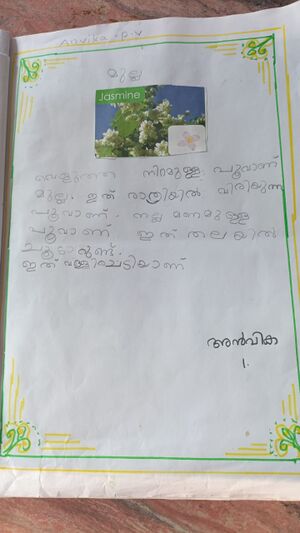 Anvika.P.V
മുല്ല
Jasmine
വെളുത്ത നിറമുള്ള പൂവാണ്
മുല്ല. ഇത് രാത്രിയിൽ വിരിയുന്ന
പൂവാണ്. നല്ല മണമുള്ള
പൂവാണ് ഇത് തലയിൽ
ചൂടാറുണ്ട്.
ഇത് വള്ളിച്ചെടിയാണ്
അൻവിക
1.